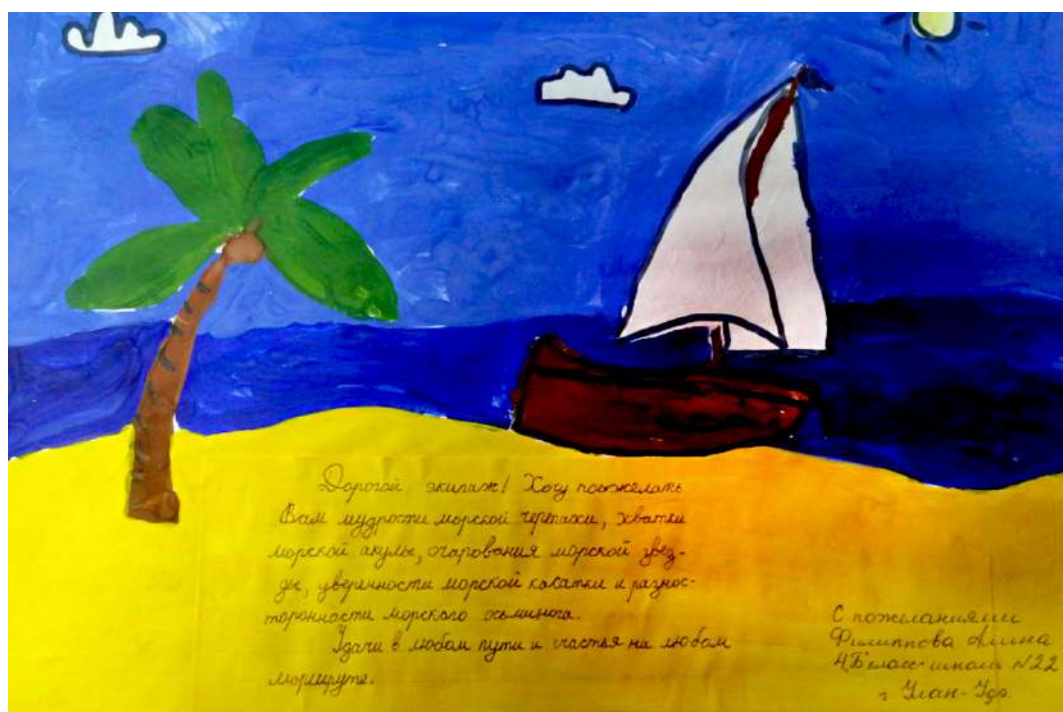 Дорогой экипаж! Хочу пожелать
Вам мудрости морской черепахи, хватки
морской акулы, очарования морской звез-
ды, уверенности морской косатки и разнос-
торонности морского осьминога.
Удачи в любом пути и счастья на любом
маршруте.
С пожеланиями
Филиппова Алина
4"Б" класс школа N22
г. Улан-Удэ.